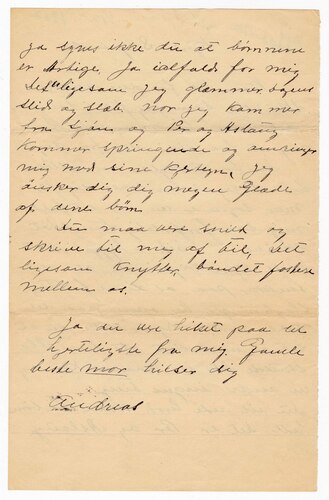 ja synes ikke du at børnene
er Artige. Ja ialfald for mig
det ligesom jeg glæmmer dagens
slid og slæb. nor jeg kommer
fra Sjøen og Per og Aslaug
kommer springende og omringer
mig med sine kjerteyn, Jeg
ønsker dig dig megen Glæde
af dine børn
Du maa vere snild og
skrive til mig af til, det
ligesom knytter, båndet fastere
mellem os.
Ja du vere hilset paa det
hjerteligste fra mig Gamle
beste mor hilser dig
Andreas